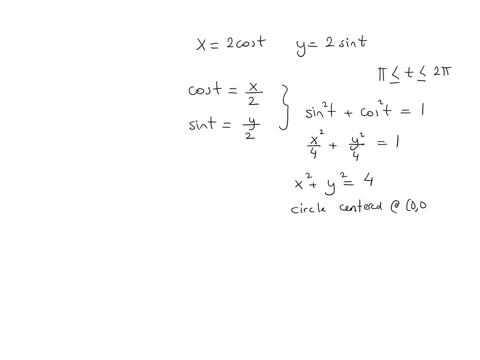 x = 2cost y = 2 sint
π ≤ t ≤ 2π
cost = x/2
sint = y/2
sin²t + cos²t = 1
x²/4 + y²/4 = 1
x² + y² = 4
circle centered @ (0,0